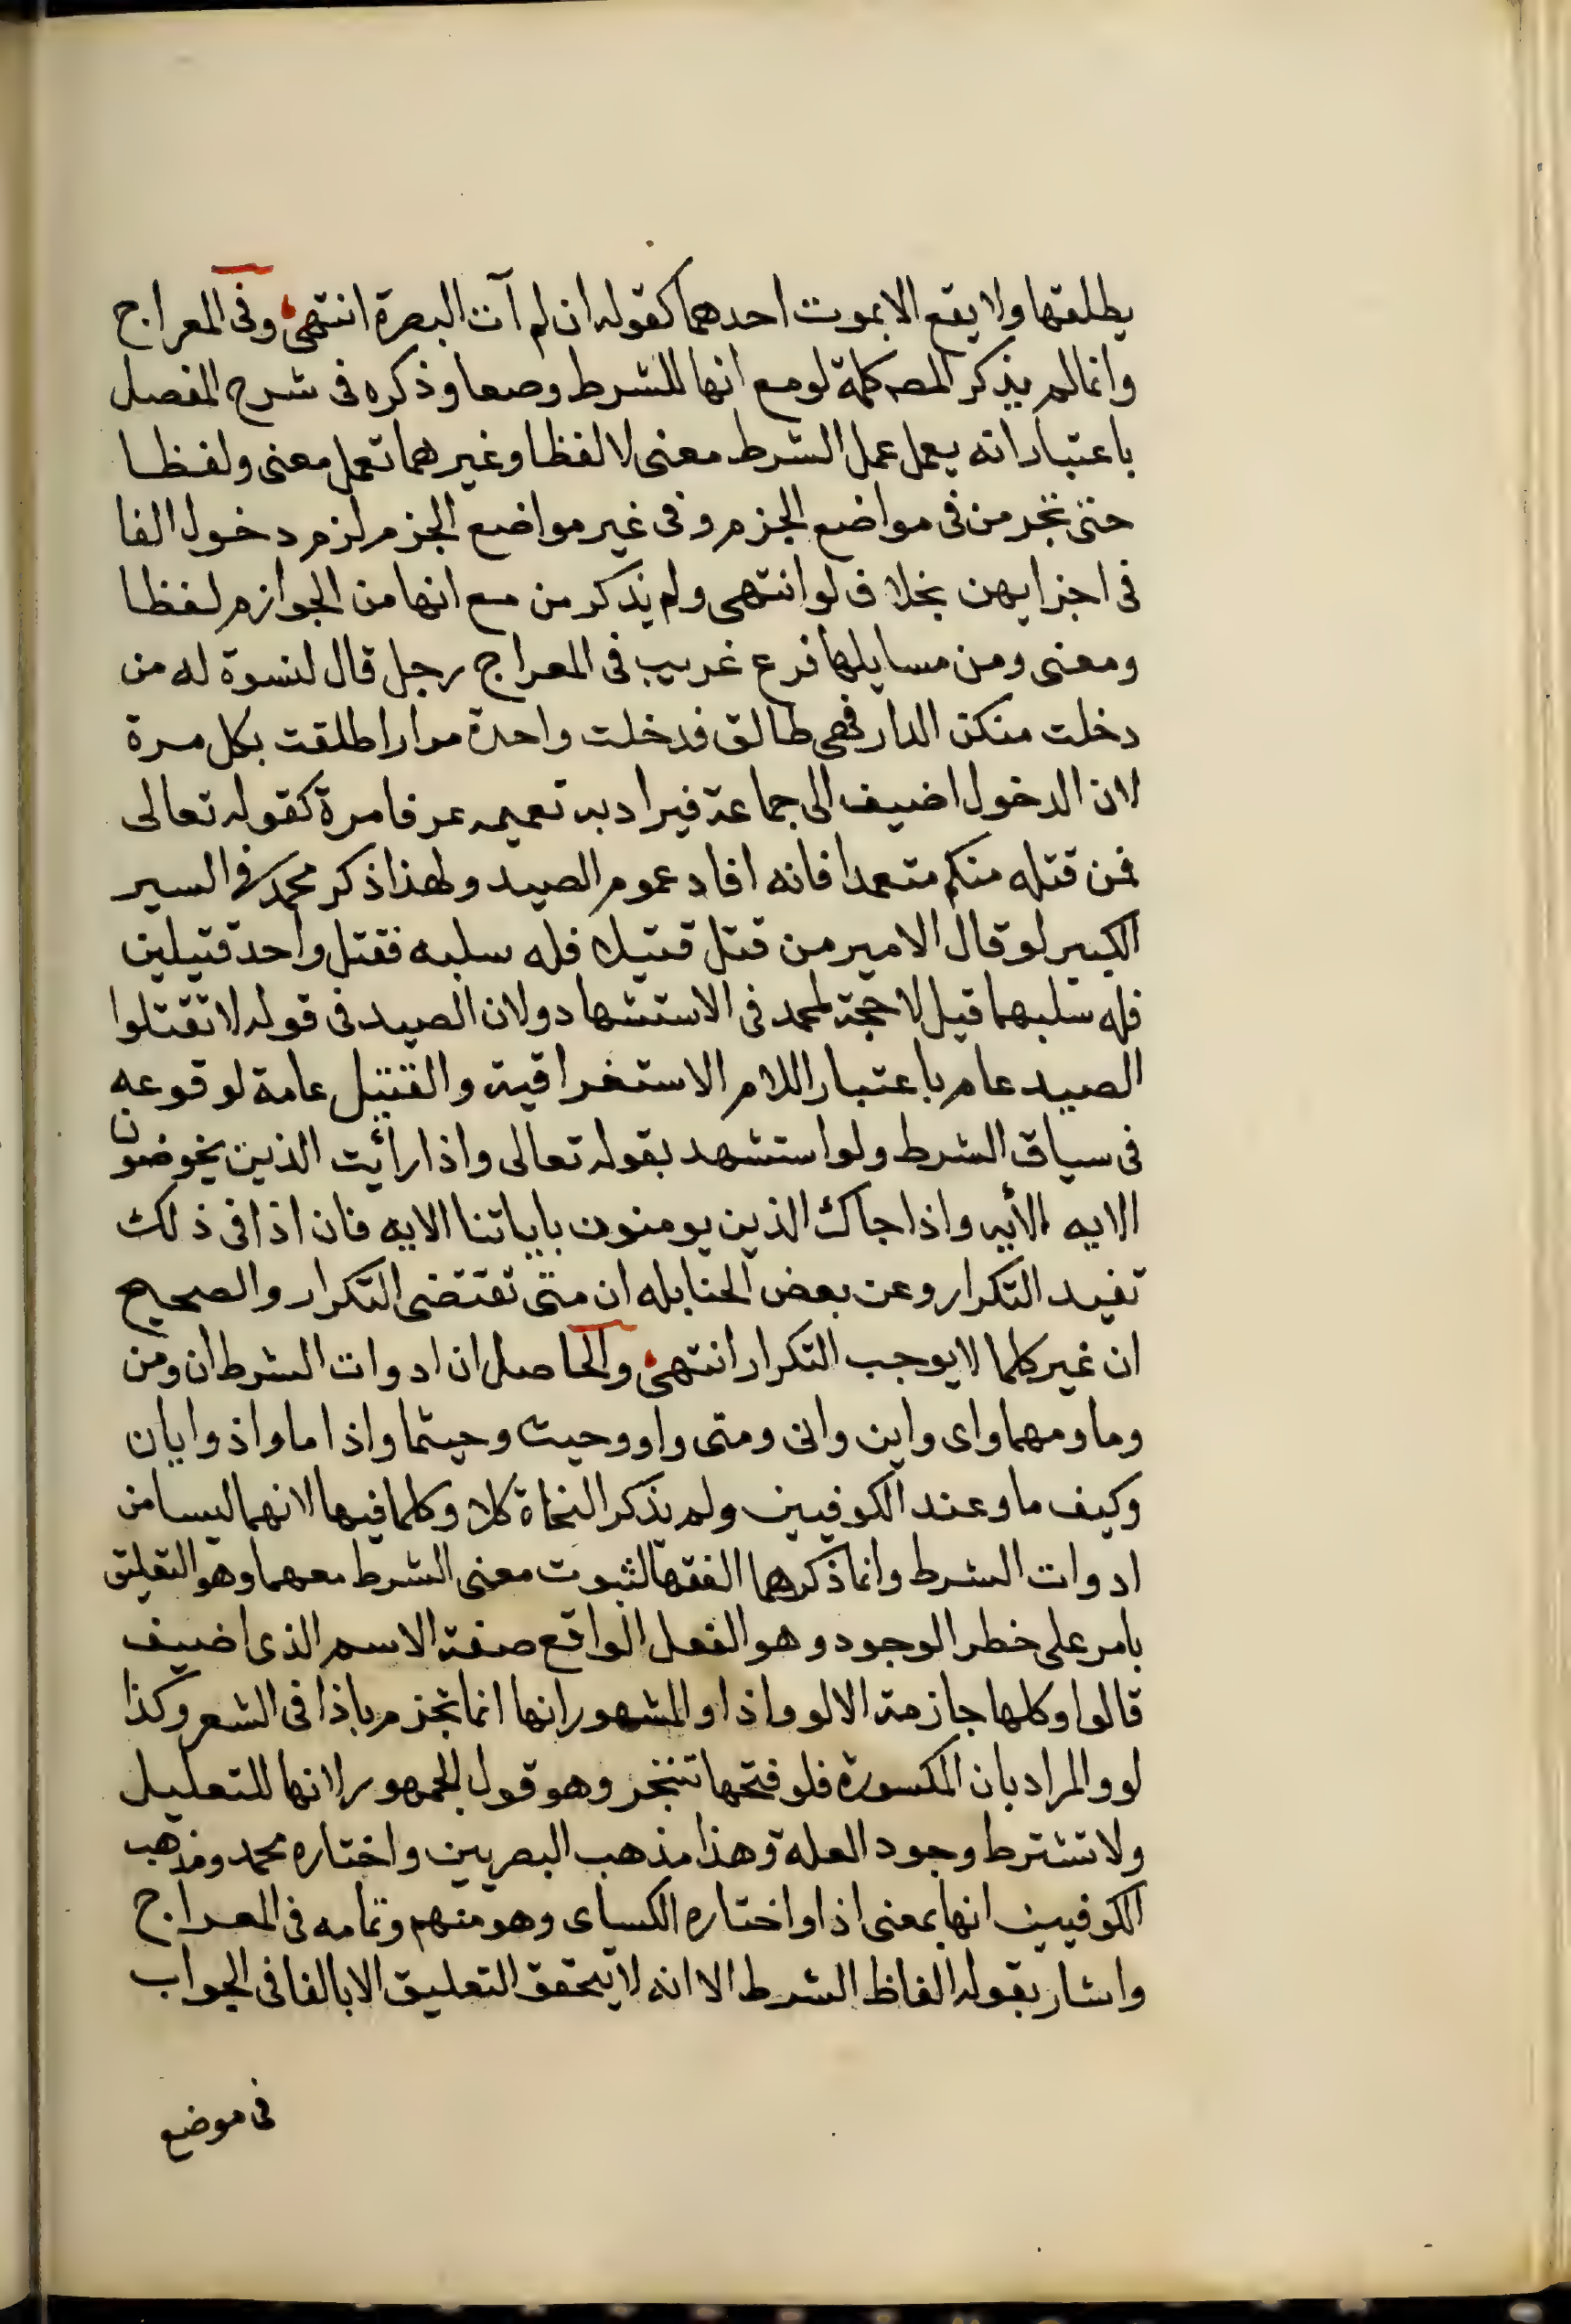 يطلقها ولا يقع الا بموت احدهما كقوله ان لم آت البصرة انتهى وفى المعراج
وانما لم يذكر المصـ كلمة لو مع انها للشرط وضعا وذكره فى شرح المفصل
باعتبار انه يعمل عمل الشرط معنى لا لفظا وغيرهما تعمل معنى ولفظا
حتى تجزمن فى مواضع الجزم وفى غير مواضع الجزم لزم دخول الفا
فى اجزايهن بخلاف لو انتهى ولم يذكر من مع انها من الجوازم لفظا
ومعنى ومن مسايلها فرع غريب فى المعراج رجل قال لنسوة له من
دخلت منكن الدار فهى طالق فدخلت واحدة مرارا طلقت بكل مرة
لان الدخول اضيف الى جماعة فيراد به تعميمه عرفا مرة كقوله تعالى
فمن قتله منكم متعمدا فانه افاد عموم الصيد ولهذا ذكر محمد فى السير
الكبير لو قال الامير من قتل قتيلا فله سلبه فقتل واحد قتيلين
فله سلبهما قيل لا حجة لمحمد فى الاستشهاد ولان الصيد فى قوله لا تقتلوا
الصيد عام باعتبار اللام الاستغراقية والقتيل عامة لوقوعه
فى سياق الشرط ولو استشهد بقوله تعالى واذا رأيت الذين يخوضون
الايه الأيه واذا جاك الذين يومنون باياتنا الايه فان اذا فى ذلك
تفيد التكرار وعن بعض الحنابله ان متى تقتضى التكرار والصحيح
ان غير كلما لا يوجب التكرار انتهى والحاصل ان ادوات الشرط ان ومن
وما ومهما واى واين وانى ومتى واو وحيث وحيثما واذا ما واذ وايان
وكيف ما وعند الكوفيين ولم يذكر النحاة كلا وكلما فيها لانهما ليسا من
ادوات الشرط وانما ذكرهما الفقها لثبوت معنى الشرط معهما وهو التعليق
بامر على خطر الوجود وهو الفعل الواقع صفة الاسم الذى اضيف
قالوا وكلها جازمة الا لو واذا والمشهور انها انما تجزم باذا فى الشعر وكذا
لو والمراد بان المكسورة فلو فتحها تنجز وهو قول الجمهور لانها للتعليل
ولا تشترط وجود العلة وهذا مذهب البصريين واختاره محمد ومذهب
الكوفيين انها بمعنى اذا واختاره الكساى وهو منهم وتمامه فى المعراج
واشار بقوله الفاظ الشرط الا انه لا يتحقق التعليق الا بالفا فى الجواب
فى موضع